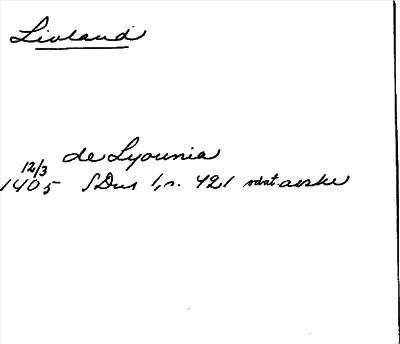 Livland
de Lyounia
12/3
1405 SDns 1, s. 421 avskr